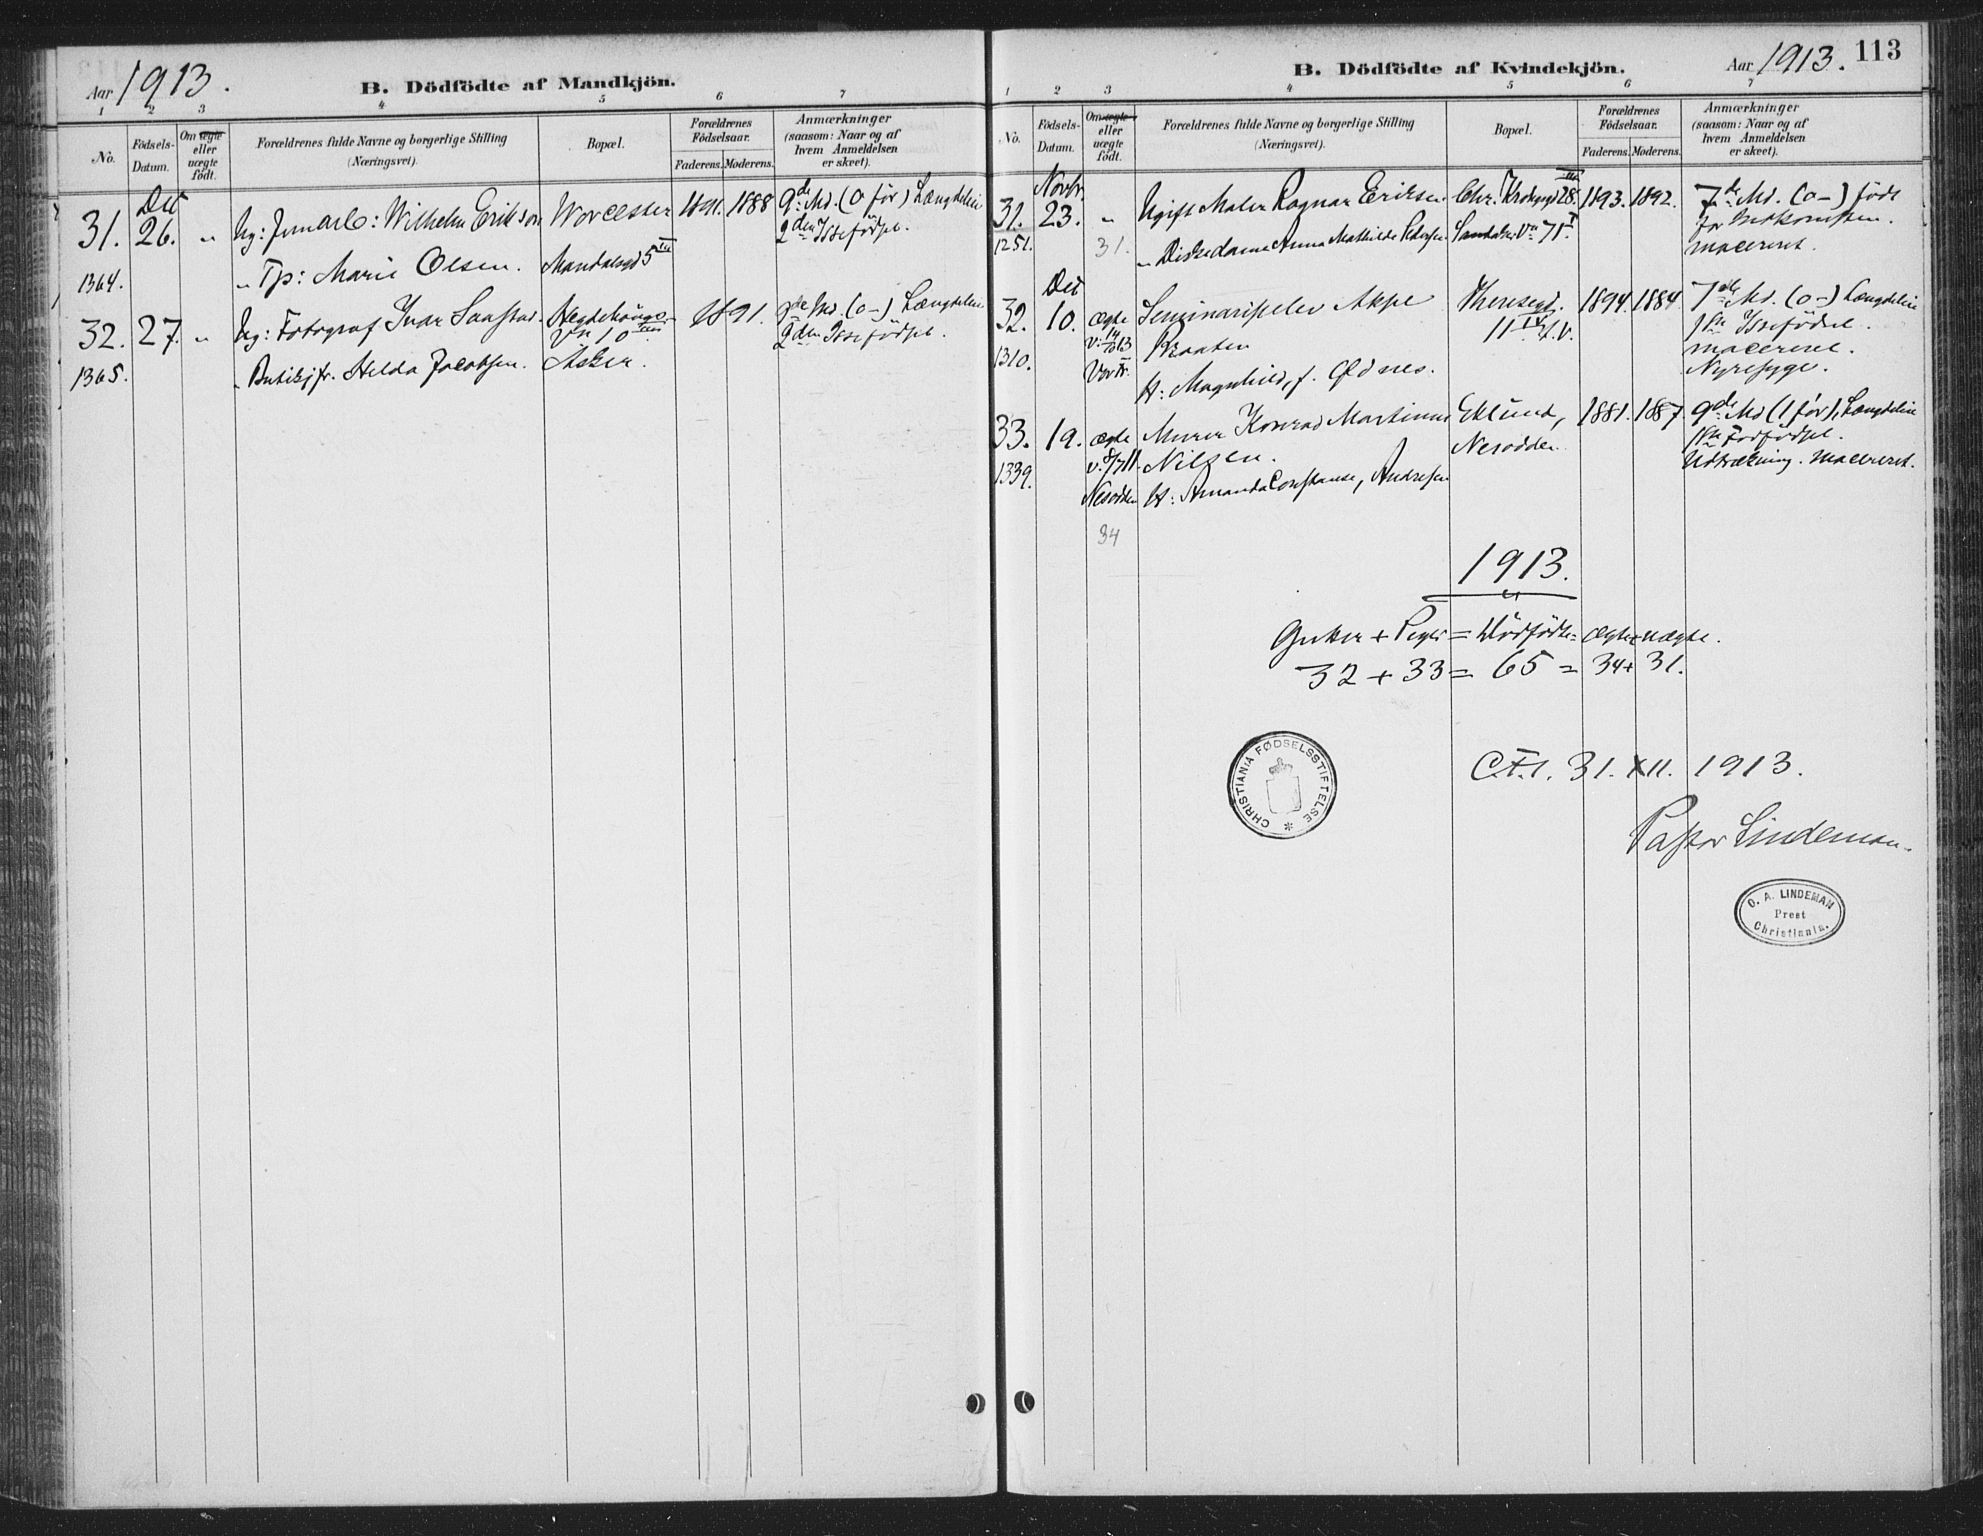 Aar 1913.
B. Dödfödte af Mandkjön.
1 2 3 4 5 6 7
No.
Födsels-
Datum.
Om ægte
eller
uægte
födt.
Forældrenes fulde Navne og borgerlige Stilling
(Næringsvei).
Bopæl.
Forældrenes
Födselsaar.
Faderens. Moderens.
Anmærkninger
(saasom: Naar og af
hvem Anmeldelsen
er skeet).
31.
1364.
26.
"
Ug: Jernarb: Wilhelm Erikson
" Tp: Marie Olsen.
Worcester
Mandalsgd 5 III
1891. 1888
9de Md. (0 før) Længdeleie
2den Issefödsel.
32.
1365.
27.
"
Ug: Fotograf Ivar Saastad.
" Butikjfr. Helda Jacobsen.
Hegdehaugs-
vn 10
Asker.
1891.
Md. (0 –) Længdeleie
2den Issefödsel.
B. Dödfödte af Kvindekjön.
Aar 1913.
113
1 2 3 4 5 6 7
No.
Födsels-
Datum.
Om ægte
eller
uægte
födt.
Forældrenes fulde Navne og borgerlige Stilling
(Næringsvei).
Bopæl.
Forældrenes
Födselsaar.
Faderens. Moderens.
Anmærkninger
(saasom: Naar og af
hvem Anmeldelsen
er skeet).
31.
1251.
Novbr.
23.
"
31.
Ugift Maler Ragnar Eriksen
" Diskedame Anna Mathilde Pedersen
Chr. Krohgsgd 28 III
Sandakerv. 71 I
1893. 1892.
7de Md. (0 –) født
før Indkomsten.
macereret.
32.
1310.
10.
ægte
Seminarist
Braaten
H: Magnhild, f. Oldnes.
Theresegd.
11 IV t.v.
1894. 1884.
7de Md. (0 –) Længdeleie
1ste Issefödsel.
macereret.
Nyresyge.
33.
1339.
19.
ægte
v: 8/7 11.
Nesodden
34
Murer Konrad Martinus
Nilsen.
H: Amanda Constanse, Andresen
Eklund,
Nesodden
1881. 1887.
9de Md (1 før), Længdeleie
1ste Fodfödsel.
Udtrækning. macereret.
1913.
Gutter + Piger = Dödfödte = ægte + uægte.
32 + 33 = 65 = 34 + 31.
CHRISTIANIA FØDSELSSTIFTELSE
31. XII. 1913.
Pastor Lindeman.
O. A. LINDEMAN
Prest
Christiania.